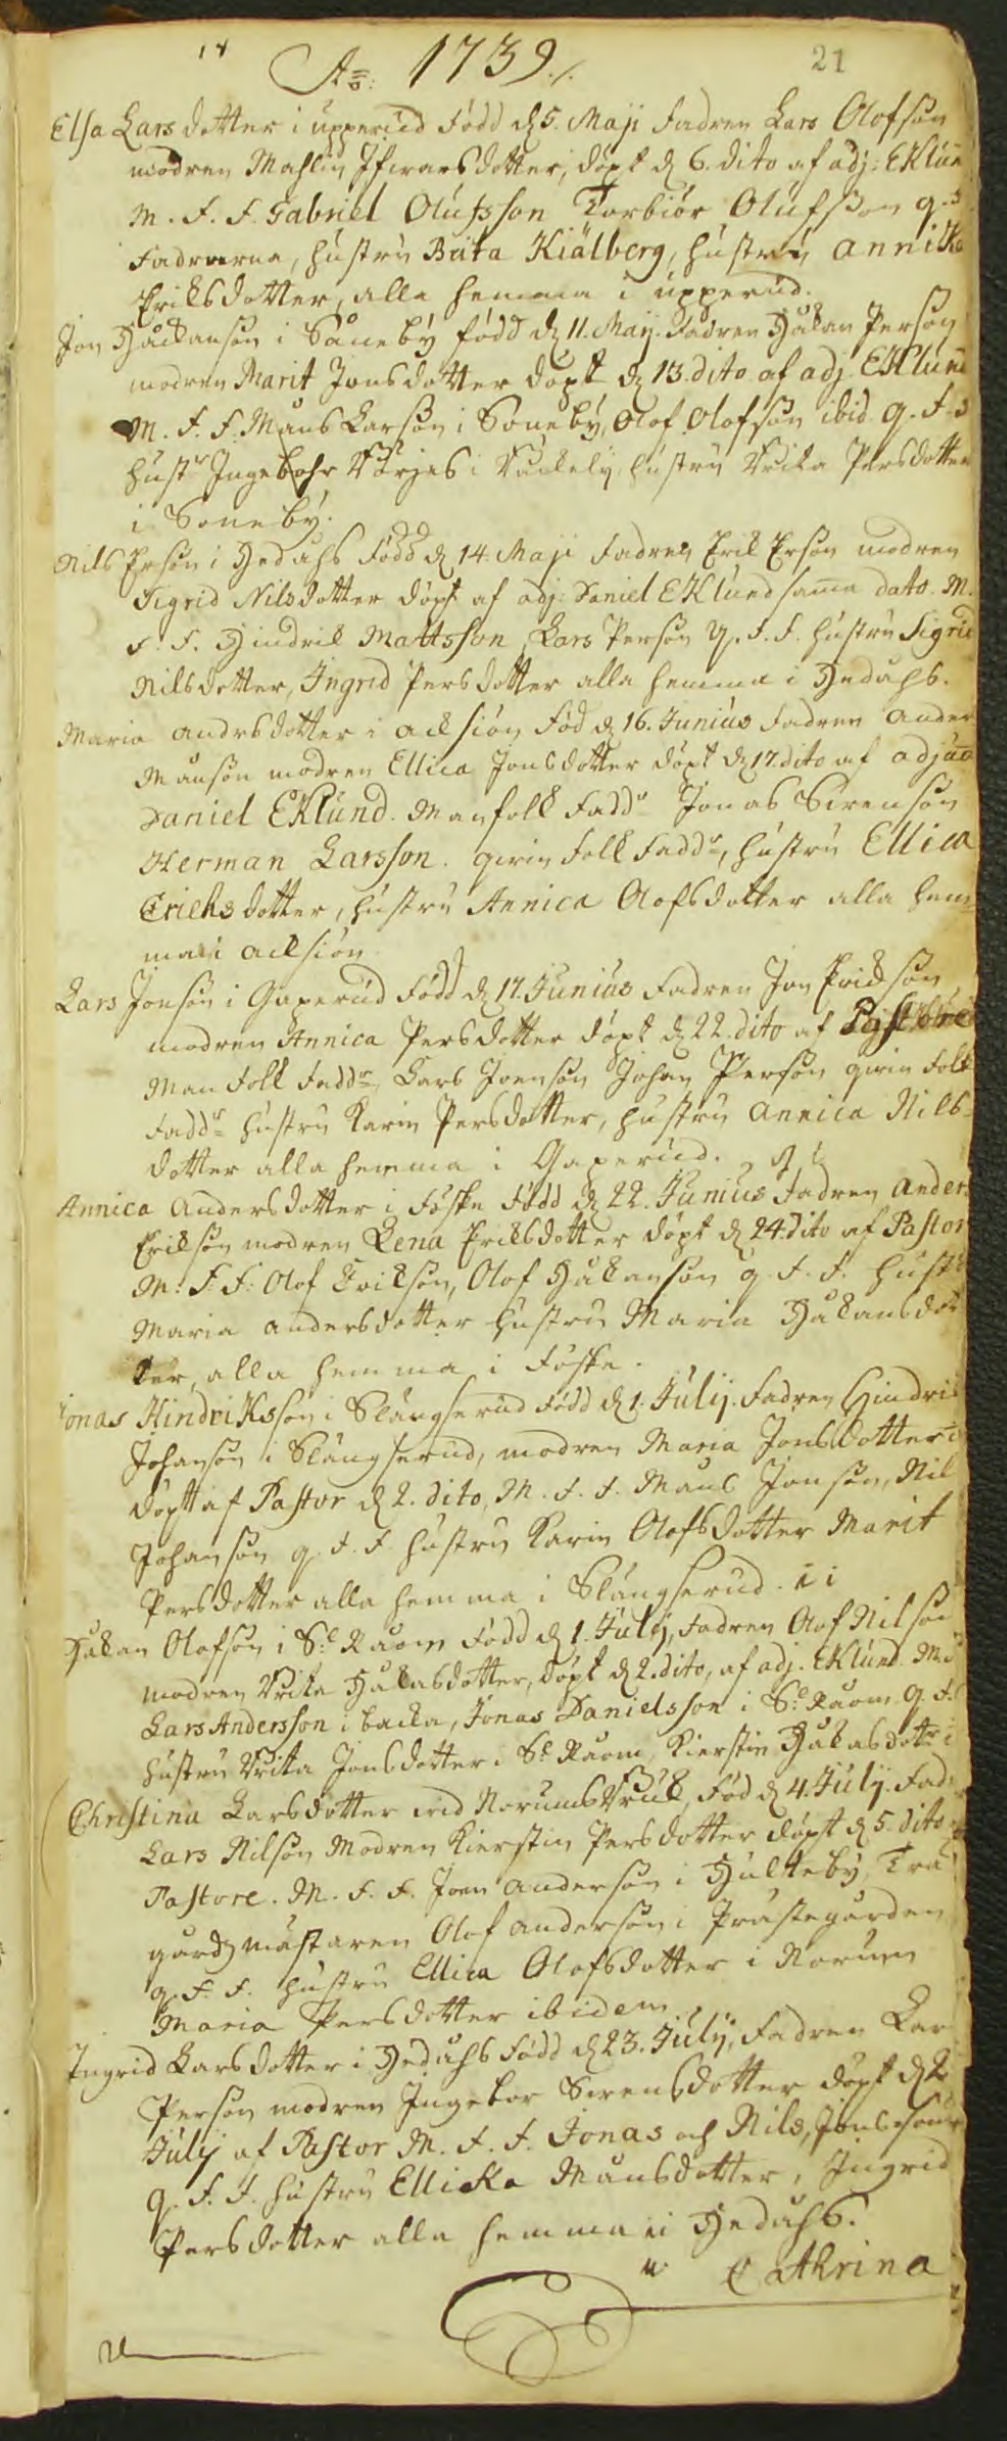 14 21
Ao: 1739./.
Elsa Larsdotter i upperud Född d 5. Maji Fadren Lars Olofson
modren Mahlin dotter, döpt d 6. dito af adj: Eklun
M. F. F. Gabriel Olufsson Torbiör Olufsson q.
Fadrarna, hustru Brita Kiälberg, hustru Annika
Eriksdotter, alla hemma i upperud.
Jon Håckanson i Såneby född d 11. Maij. Fadren Håkan Person
modren Marit Jonsdotter döpt d 13. dito af adj. EKlund
M. F. F. Måns Larson i Soneby, Olof Olofson ibid. q. F.
hustr Ingebohr Börjes i hustru Brita Persdotter
i Soneby.
Nils Erson i Hedåhs Född d 14. Maji Fadren Erik Erson modren
Sigrid Nilsdotter döpt af adj: Daniel EKlund sama dato. M.
F. F. Hindrik Mattsson, Lars Person q. F. F. hustru Sigrid
Nilsdotter, Ingrid Persdotter alla hemma i Hedåhs.
Maria andrsdotter i acksiön Föd d 16. Junius Fadren ander
Månson modren Ellica Jonsdotter döpt d 17. dito af adju
Daniel EKlund. Manfolk Faddr Jonas Sörenson
Herman Larsson. qvinfolk Faddr, hustru Ellica
Erichsdotter, hustru Annica Olofsdotter alla hem=
ma i acksiön
Lars Jonson i Gaperud Född d 17. Junius Fadren Jon Erikson
modren Annica Persdotter döpt d 22. dito af Pastore
Manfolk Faddr Lars Joenson Johan Person qvinfolk
Faddr hustru Karin Persdotter, hustru Annica Nils=
dotter alla hemma i Gaperud.
Annica andersdotter i Föske Född d 22. Junius Fadren ander
Erikson modren Lena Eriksdotter döpt d 24. dito af Pastor
M: F F: Olof Erikson, Olof Håkanson q. F. F. hustr
Maria andersdotter hustru Maria Håkansdot
ter, alla hemma i Föske.
Jonas Hindriksson i Slängserud Född d 1. Julij. Fadren Hindrik
Johanson i Slängserud, modren Maria Jonsdotter
döpt af Pastor d 2. dito, M. F. F. Måns Jonson, Nil
Johanson q. F. F. hustru Karin Olofsdotter Marit
Persdotter alla hemma i Slängserud.
Håkan Olofson i St Råom Född d 1. Julij, Fadren Olof Nilson
modren Brita Håkasdotter, döpt d 2. dito, af adj. EKlund. M.
Lars Andersson i backa, Jonas Danielsson i St Råom q. F.
hustru Brita Jonsdotter i St Råom, Kierstin Håkasdotr i
Christina Larsdotter vid Norumsbruk, Föd d 4. Julij. Fad
Lars Nilson Modren Kierstin Persdotter döpt d 5. dito
Pastore. M. F. F. Joen anderson i Hulteby, Trä
gårdzmästaren Olof anderson i Prästegården
q. F. F. hustru Ellica Olofsdotter i Norum
Maria Persdotter ibidem
Ingrid Larsdotter i Hedåhs Född d 23. Julij, Fadren Lar
Person modren Ingebor Sörensdotter döpt d 2
Julij af Pastor M. F. F. Jonas och Nils, Jonsson
q. F. F. hustru Ellicka Månsdotter, Ingrid
Persdotter alla hemma i Hedåhs.
Cathrina